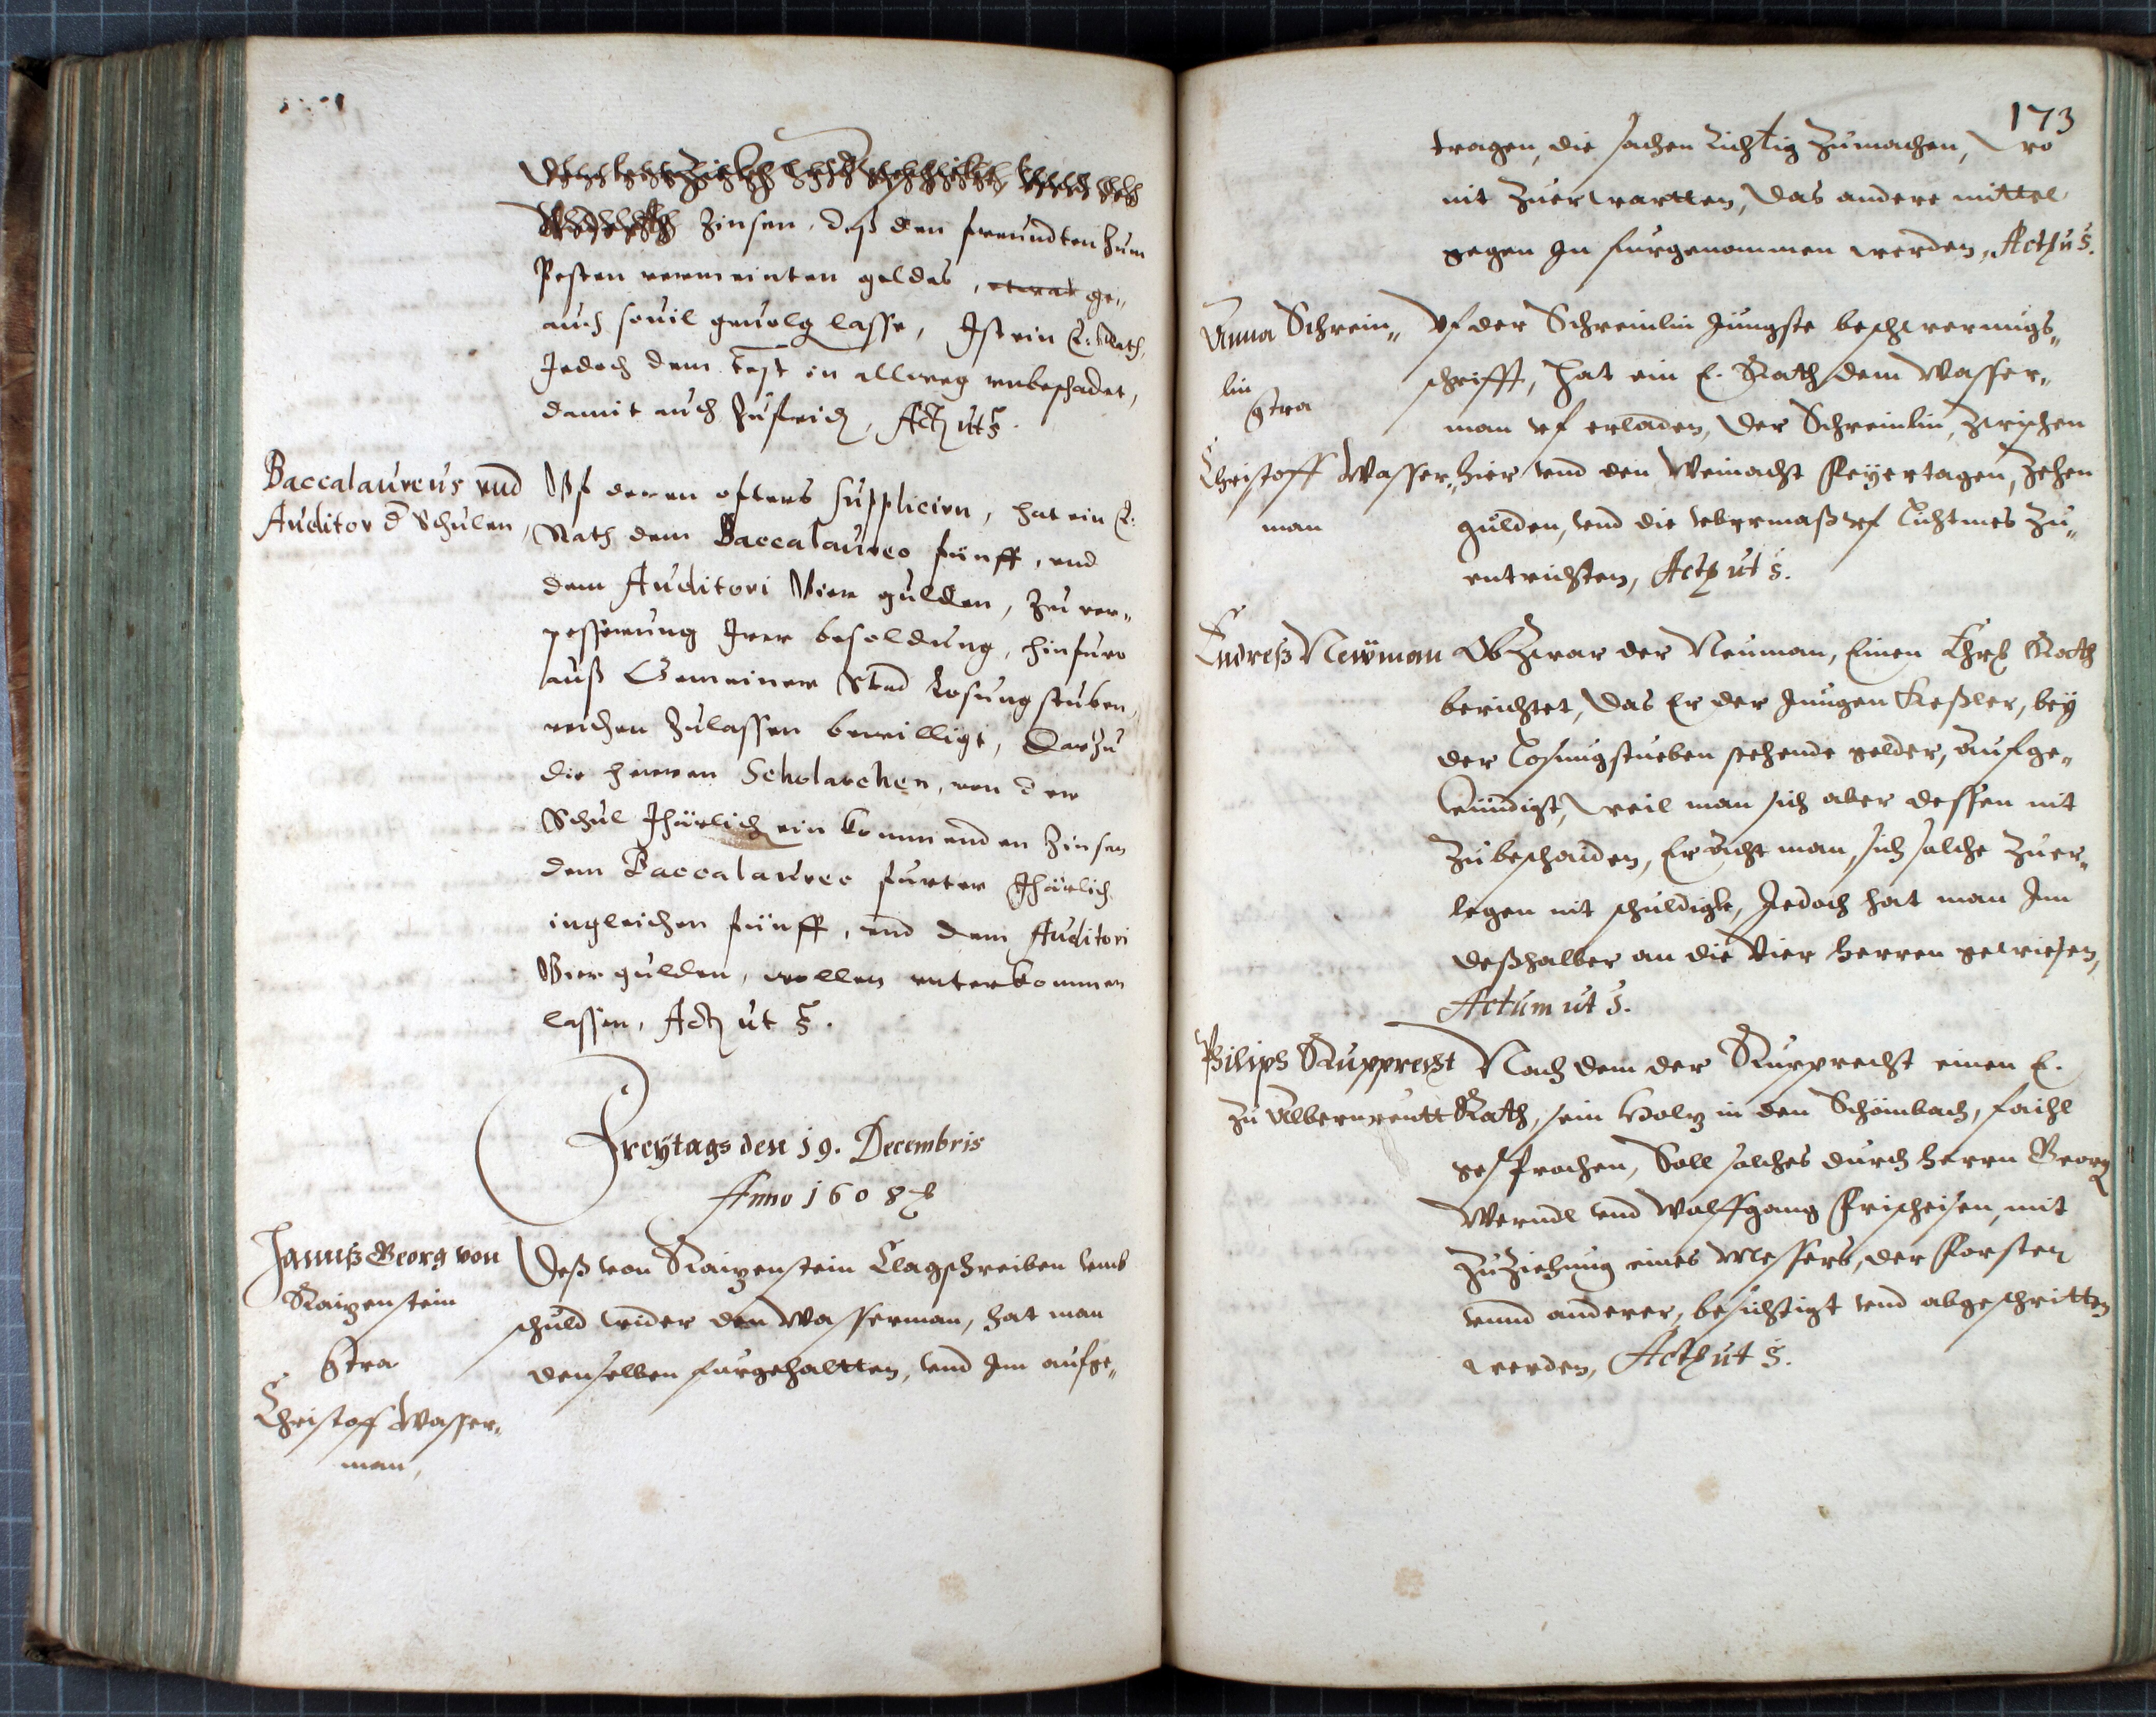 Zinsen, deß den freundten zum
Pesten vermeinten geldes, etwas ge„
auch sovil gevolg lasse, Ist ein E: Rath,
Jedoch dem Test in allweg unbeschadet,
damit auch Zufrid, Act ut s.
Baccalaureus vnd
Auditor d Schulen,
Vff deren ofters Supplicirn, hat ein E:
Rath dem Baccalaureo fünff, vnd
dem Auditori Vier gulden, zu ver„
pesserung Irer besoldung, hinfuro
auß Gemeiner Stad Losungstuben,
reichen zulassen bewilligt, Darzu
die herren Scholarchen, von der
Schul Jhärlich einkommenden Zinsen
dem Baccalaureo furter Jhärlich
ingleichen fünff, vnd dem Auditori
Vier gulden, wollen unterkommen
lassen, Act ut s.
Freytags den 19. Decembris
Anno 1608
Hannß Georg von
Raizenstein
Ctra
Christoff Wasser„
man,
Deß von Raizenstein Clagschreiben vmb
schuld wider den Wasserman, hat man
denselben furgehaltten, vnd Im aufge„
173
tragen, die sachen Richtig Zumachen, Wo
nit Zuerwartten, das andere mittel
gegen In furgenommen werden, Act ut s.
Anna Schrein„
lin
Ctra
Christoff Wasser„
man
Vf der Schreinlin Jungste beschwerungs„
schrifft, Hat ein E. Rath dem Wasser„
man vf erladen, Der Schreinlin, Zwischen
hier vnd den Weinacht Feyertagen, Zehen
gulden, vnd die vbermaß vf Lichtmes Zu„
entrichten, Act ut s.
Endreß Newman
Ob Zwar der Neuman, Einen Ehrb Rath
berichtet, das Er der Jungen Keßler, bey
der Losungstueben stehende gelder, Aufge„
kündigt, weil man sich aber dessen nit
Zubeschaiden, Eracht man, sich solche Zuer„
legen nit schuldigk, Jedoch hat man Im
deßhalber an die Vier Herren gewiesen,
Actum ut s.
Philips Rupprecht
zu Albernreutt
Nach dem der Rupprecht einen E.
Rath, sein Holz in den Schönbach, faihl
gesprochen, Soll solches durch Herrn Georg
Werndl vnd Wolffgang Frischeisen, mit
Zuziehung eines Messers, der Forster
vnnd anderer, besichtigt vnd abgeschritten
werden, Act ut s.